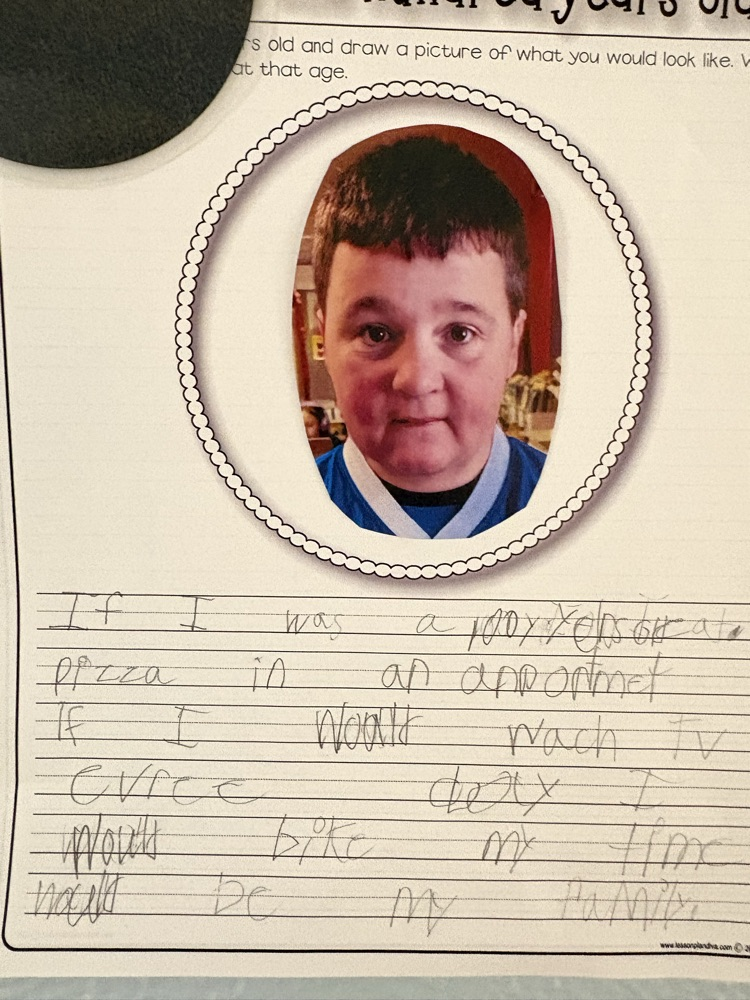 hundred years old
rs old and draw a picture of what you would look like. W
at that age.
If I was a 100
pizza in an
If I Woald wach Tv
evree I
Would bike my time
be my family.
www.lessonplandiva.com ©